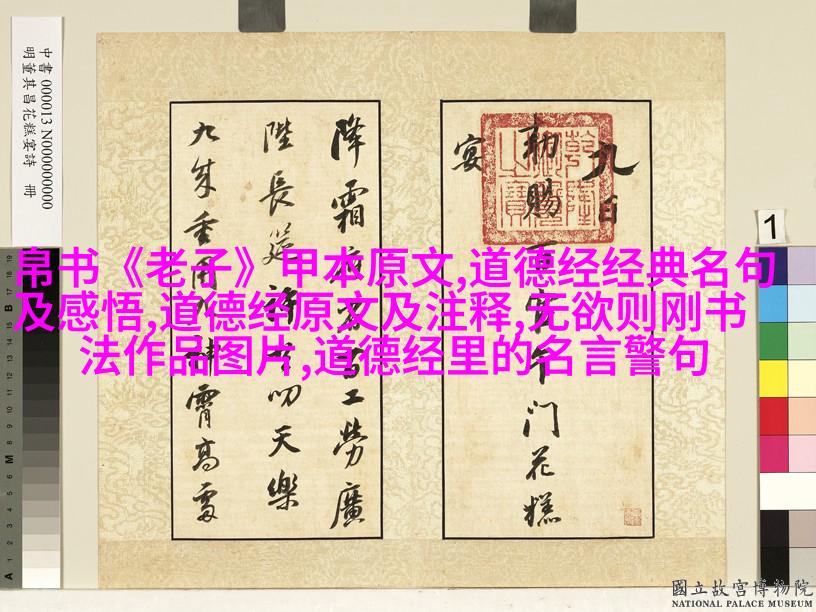 中書 000013 N000000000
明董其昌花糕宴詩 冊
九日
勅賜百官午門花糕
宴
降霜
工勞廣
陛長筵
叨天樂
九成重
霄高露
帛书《老子》甲本原文,道德经经典名句
及感悟,道德经原文及注释,无欲则刚书
法作品图片,道德经里的名言警句
1
國立故宮博物院
NATIONAL PALACE MUSEUM